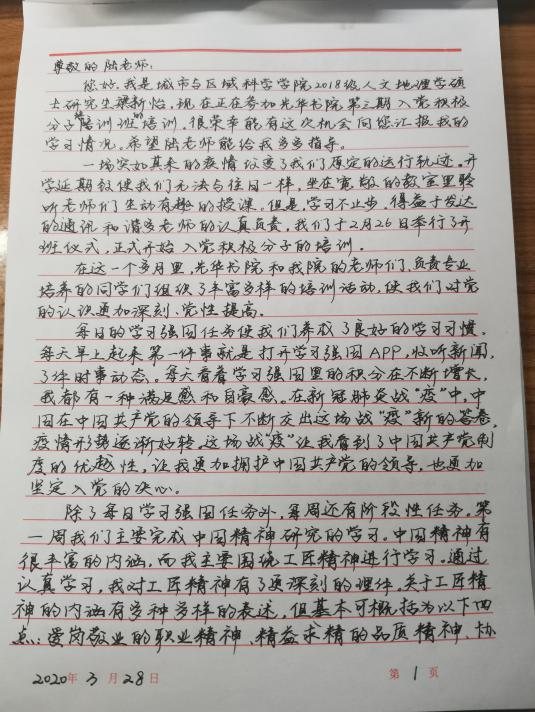 尊敬的陆老师：
您好，我是城市与区域科学学院2018级人文地理学硕
士研究生 新怡，现在正在参加光华书院第三期入党积极
分子培训班的培训。很荣幸能有这次机会向您汇报我的
学习情况。希望陆老师能给我多多指导。
一场突如其来的疫情改变了我们原定的运行轨迹。开
学延期致使我们无法与往日一样，坐在宽敞的教室里聆
听老师们生动有趣的授课。但是，学习不止步，得益于发达
的通讯和诸多老师的认真负责，我们于2月26日举行了开
班仪式，正式开始入党积极分子的培训。
在这一个多月里，光华书院和我院的老师们、负责专业
培养的同学们组织了丰富多样的培训活动，使我们对党
的认识更加深刻、党性提高。
每日的学习强国任务使我们养成了良好的学习习惯。
每天早上起来第一件事就是打开学习强国APP，收听新闻，
了解时事动态。每天看着学习强国里的积分在不断增长，
我都有一种满足感和自豪感。在新冠肺炎战“疫”中，中
国在中国共产党的领导下不断交出这场战“疫”新的答卷，
疫情形势逐渐好转。这场战“疫”让我看到了中国共产党制
度的优越性，让我更加拥护中国共产党的领导，也更加
坚定入党的决心。
除了每日学习强国任务外，每周还有阶段性任务。第
一周我们主要完成中国精神研究的学习。中国精神有
很丰富的内涵，而我主要围绕工匠精神进行学习。通过
认真学习，我对工匠精神有了更深刻的理解。关于工匠精
神的内涵有多种多样的表述，但基本可概括为以下四
点：爱岗敬业的职业精神、精益求精的品质精神、协
2020年3月28日 第1页